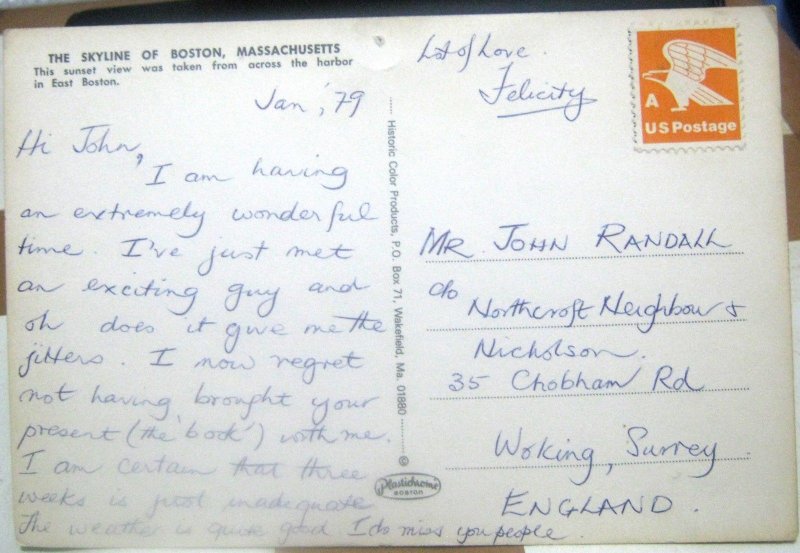 THE SKYLINE OF BOSTON, MASSACHUSETTS
This sunset view was taken from across the harbor
in East Boston.
Jan', 79
Hi John,
I am having
an extremely wonderful
time. I've just met
an exciting guy and
oh does it give me the
jitters. I now regret
not having brought your
present (the 'book') with me.
I am certain that three
weeks is just inadequate
The weather is quite good. I do miss you people.
Lot of Love.
Felicity
Historic Color Products, P.O. Box 71, Wakefield, Ma. 01880
©
Plastichrome
BOSTON
A
US Postage
MR. JOHN RANDALL
c/o
Northcroft Neighbour &
Nicholson.
35 Chobham Rd
Woking, Surrey
ENGLAND.